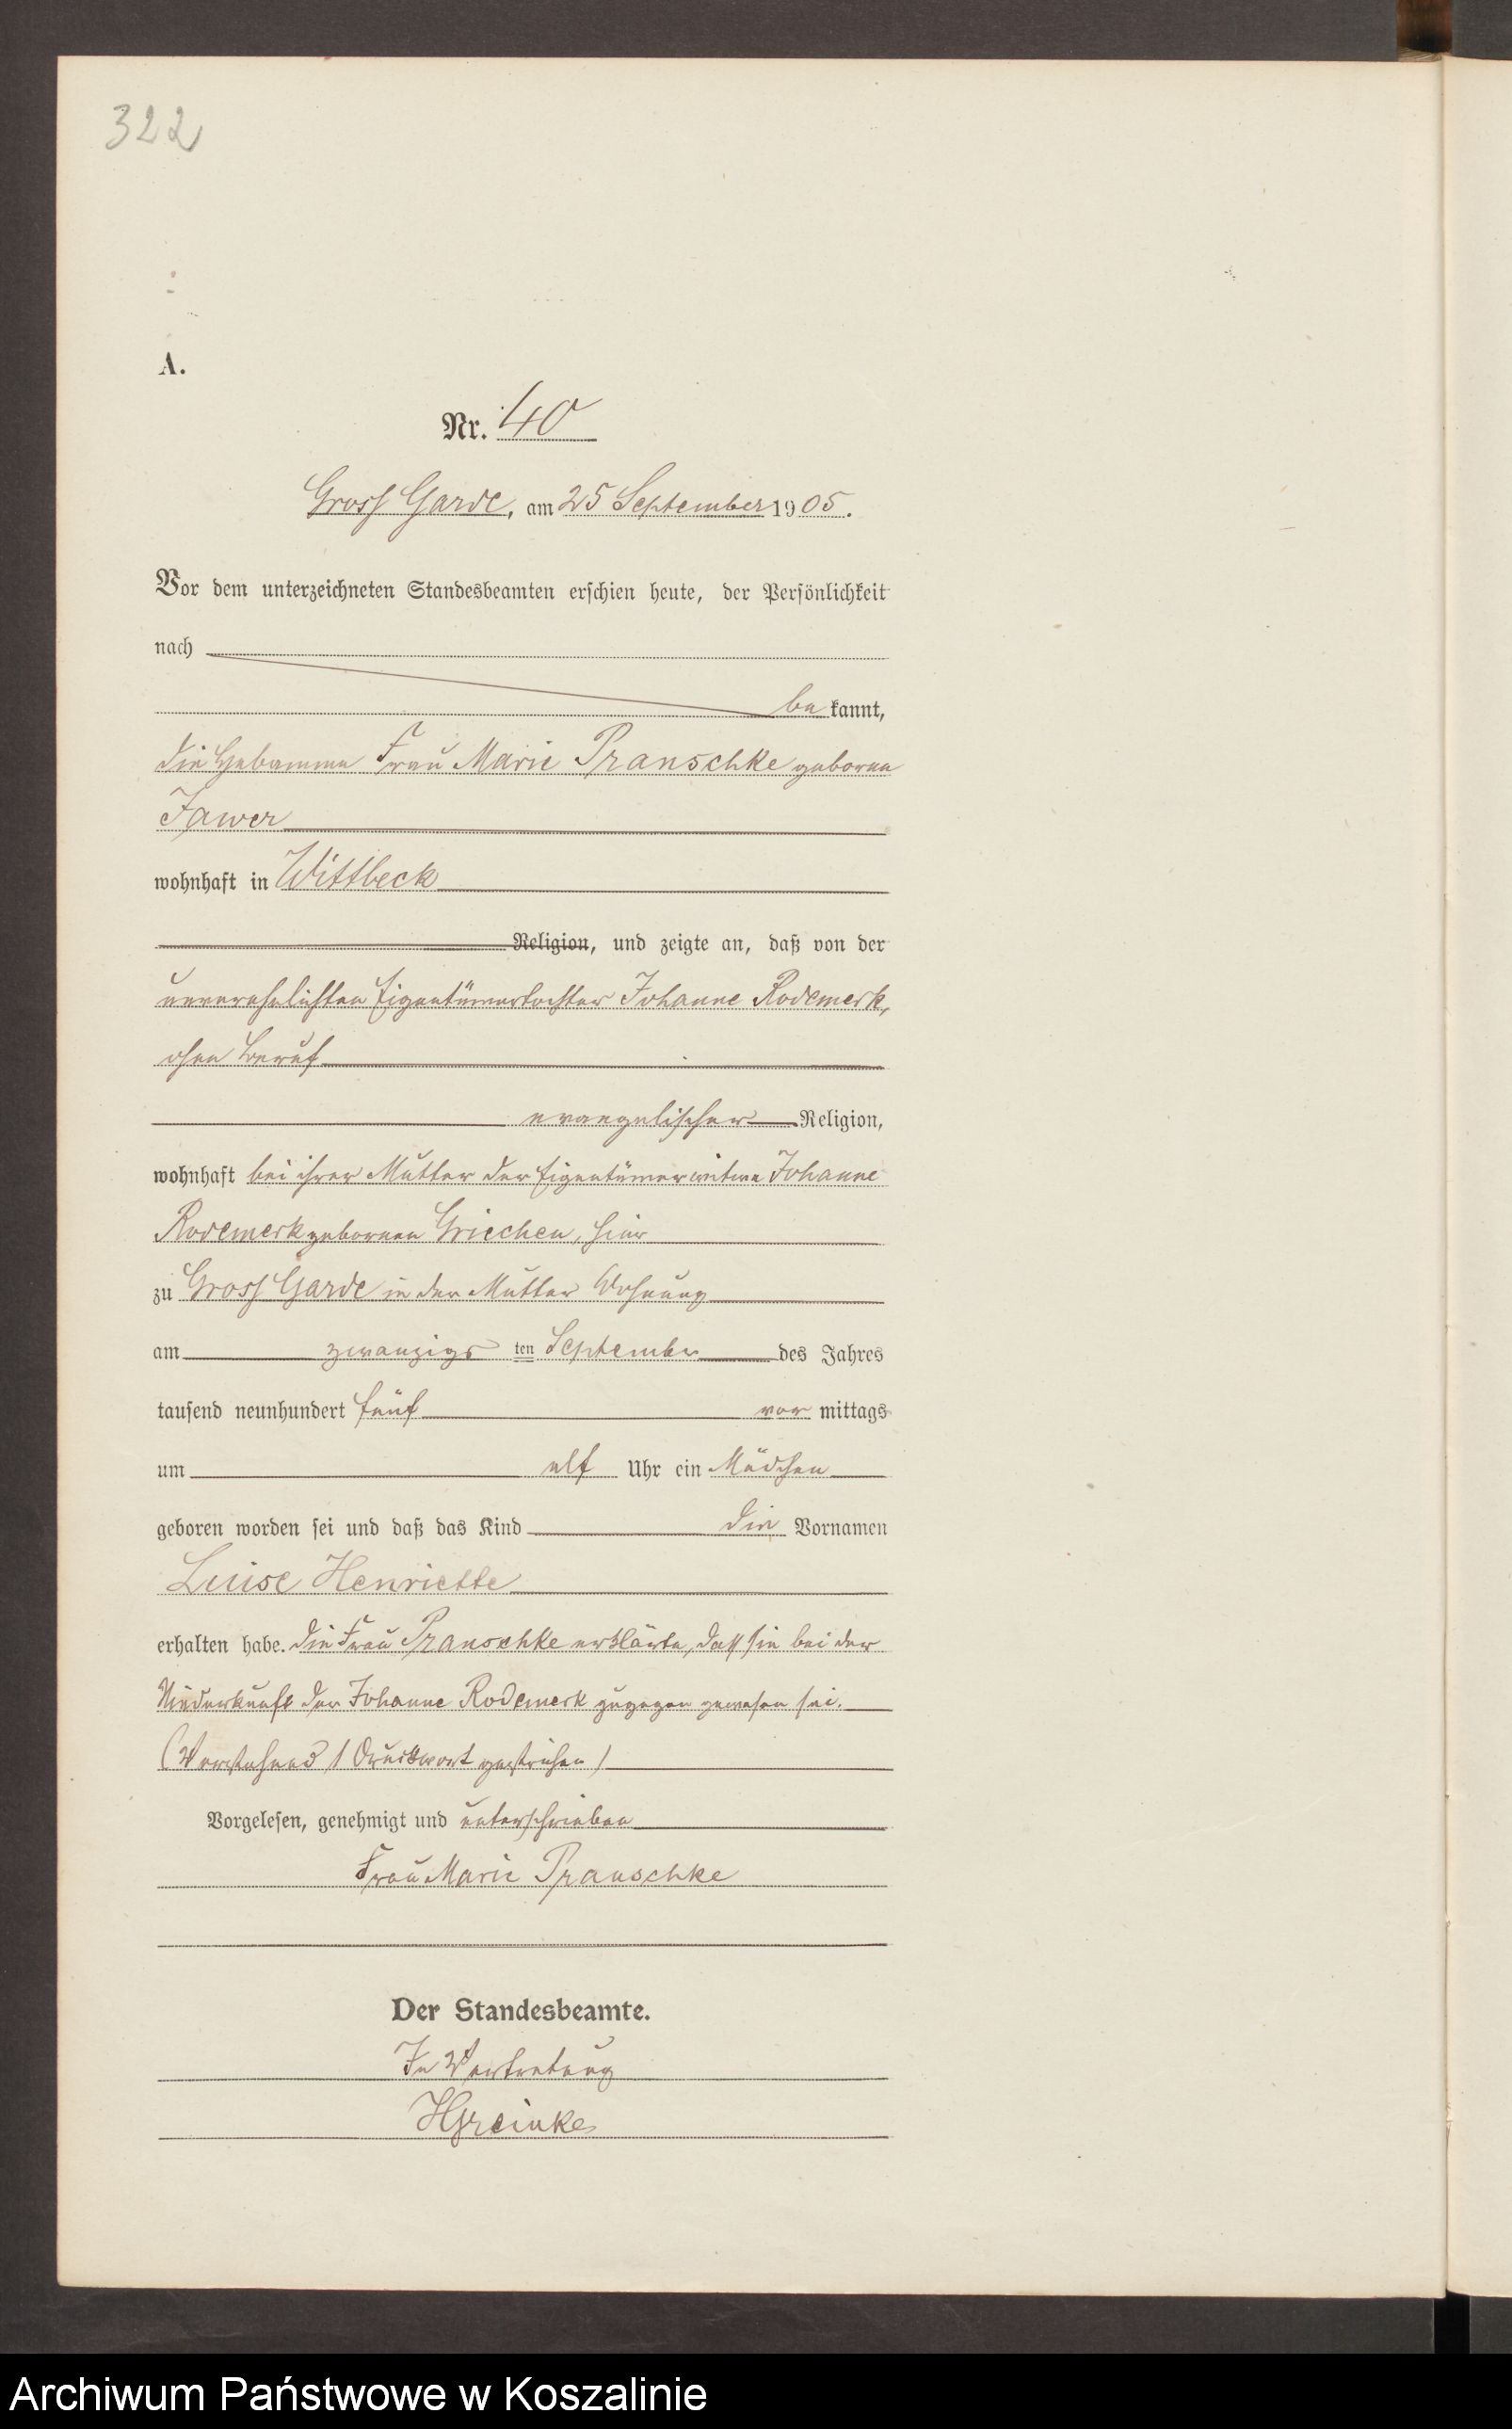 322
A.
Nr. 40
Gross Garde, am 25 September 1905.
Vor dem unterzeichneten Standesbeamten erschien heute, der Persönlichkeit
nach
be kannt,
die Hebamme Frau Marie Pranschke geborne
Jawer
wohnhaft in Wittbeck
Religion, und zeigte an, daß von der
unverehelichten Eigentümertochter Johanne Rodemerk,
ohne Beruf
evangelischer Religion,
wohnhaft bei ihrer Mutter der Eigentümerwitwe Johanne
Rodemerk gebornen Griechen, hier
zu Gross Garde in der Mutter Wohnung
am zwanzigs ten September des Jahres
tausend neunhundert fünf vor mittags
um elf Uhr ein Mädchen
geboren worden sei und daß das Kind die Vornamen
Luise Henriette
erhalten habe. Die Frau Pranschke erklärte, daß sie bei der
Niederkunft der Johanne Rodemerk zugegen gewesen sei.
(Vorstehend 1 Druckwort gestrichen)
Vorgelesen, genehmigt und unterschrieben
Frau Marie Pranschke
Der Standesbeamte.
In Vertretung
HGreinke
Archiwum Państwowe w Koszalinie